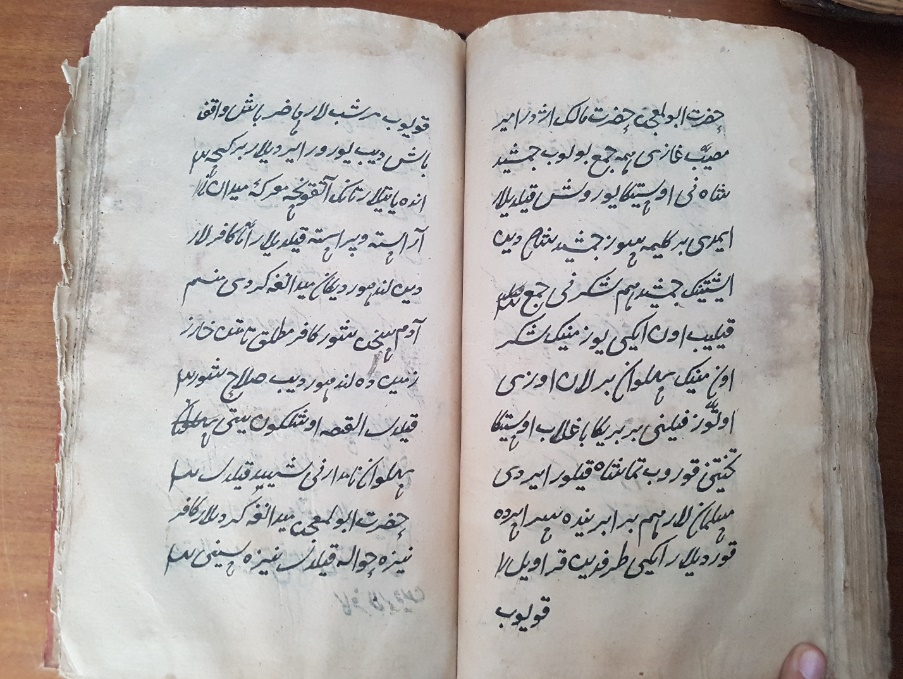 حضرت ابوالمعجن حضرت مالک اژدر امیر
مصیّب غازی همه جمع بولوب جمشید
شاه نی اوستیکا یوروش قیلدیلار
ایمدی بر کلیمه سوز جمشید شاه دین
ایشیتینک جمشید هم لشکر نی جمع
قیلیب اون ایکی یوز مینک لشکر
اون مینک پهلوان برلان اوزی
اولتّوز فیلنی بر بریکا باغلاب اوستیکا
تختنی قوروب تماشاه قیلور ایردی
مسلمان لار هم برابرینده سراپرده
قوردیلار ایکی طرفدین قراویل لا
قویوب
قویوب هر شب لار حاضر باش واقف
باش دیب یورور ایردیلار بر کیچه
انده یاتیلار تانک آتقونچه معرکهٔ میدان
آراسته و پیراسته قیلدیلار کافر لار
دین لندهور دیکان میدانغه کردی منم
آدم سخن شنور کافر مطلق تاش خارز
زمین ده لندهور دیب صلاح شور
قیلدی القصه اوشلکون یتی
پهلوان نامدار نی شهید قیلدی
حضرت ابوالمعجن میدانغه کردیلار کافر
نیزه حواله قیلدی نیزه سینی